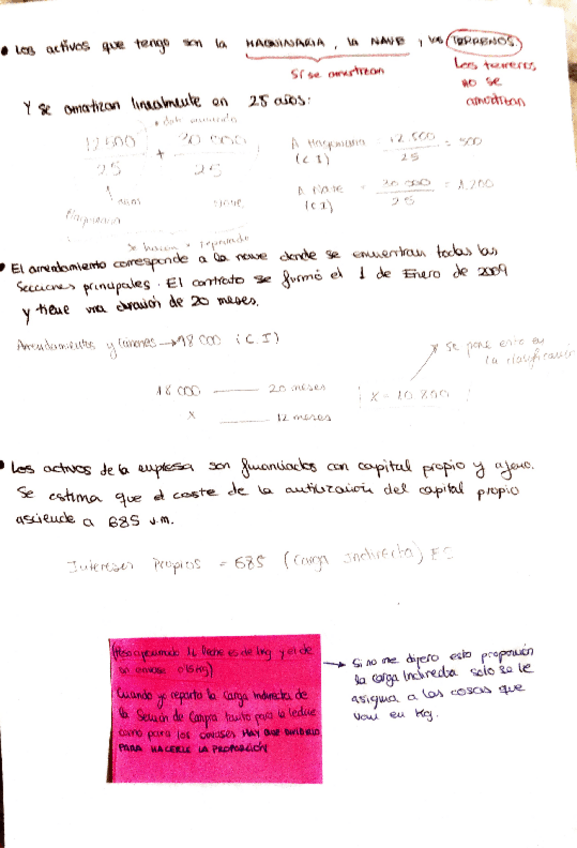 • Los activos que tengo son la MAQUINARIA, la NAVE y los TERRENOS.
Sí se amortizan
Los terrenos
no se
amortizan
Y se amortizan linealmente en 25 años:
12500 / 25 + 30 000 / 25
Maquinaria
nave
A Maquinaria = 12.500 / 25 = 500
(C I)
A Nave = 30 000 / 25 = 1.200
(C I)
• El arrendamiento corresponde a la nave donde se encuentran todas las
secciones principales. El contrato se firmó el 1 de Enero de 2009
y tiene una duración de 20 meses.
Arrendamientos y cánones → 18 000 (C.I)
* Se pone esto en
la clasificación
18 000 —— 20 meses
x —— 12 meses
x = 10.800
• Los activos de la empresa son financiados con capital propio y ajeno.
Se estima que el coste de la utilización del capital propio
asciende a 685 u.m.
Intereses Propios = 685 (Carga Indirecta) EC
1L leche es de 1kg y el de
un envase 0'5 kg)
Cuando yo reparto la Carga Indirecta de
la Sección de Compra tanto para la leche
como para los envases HAY QUE
PARA HACERLE LA PROPORCIÓN
→ Si no me dijera esta proporción
la carga Indirecta solo se le
asigna a las cosas que
van en Kg.